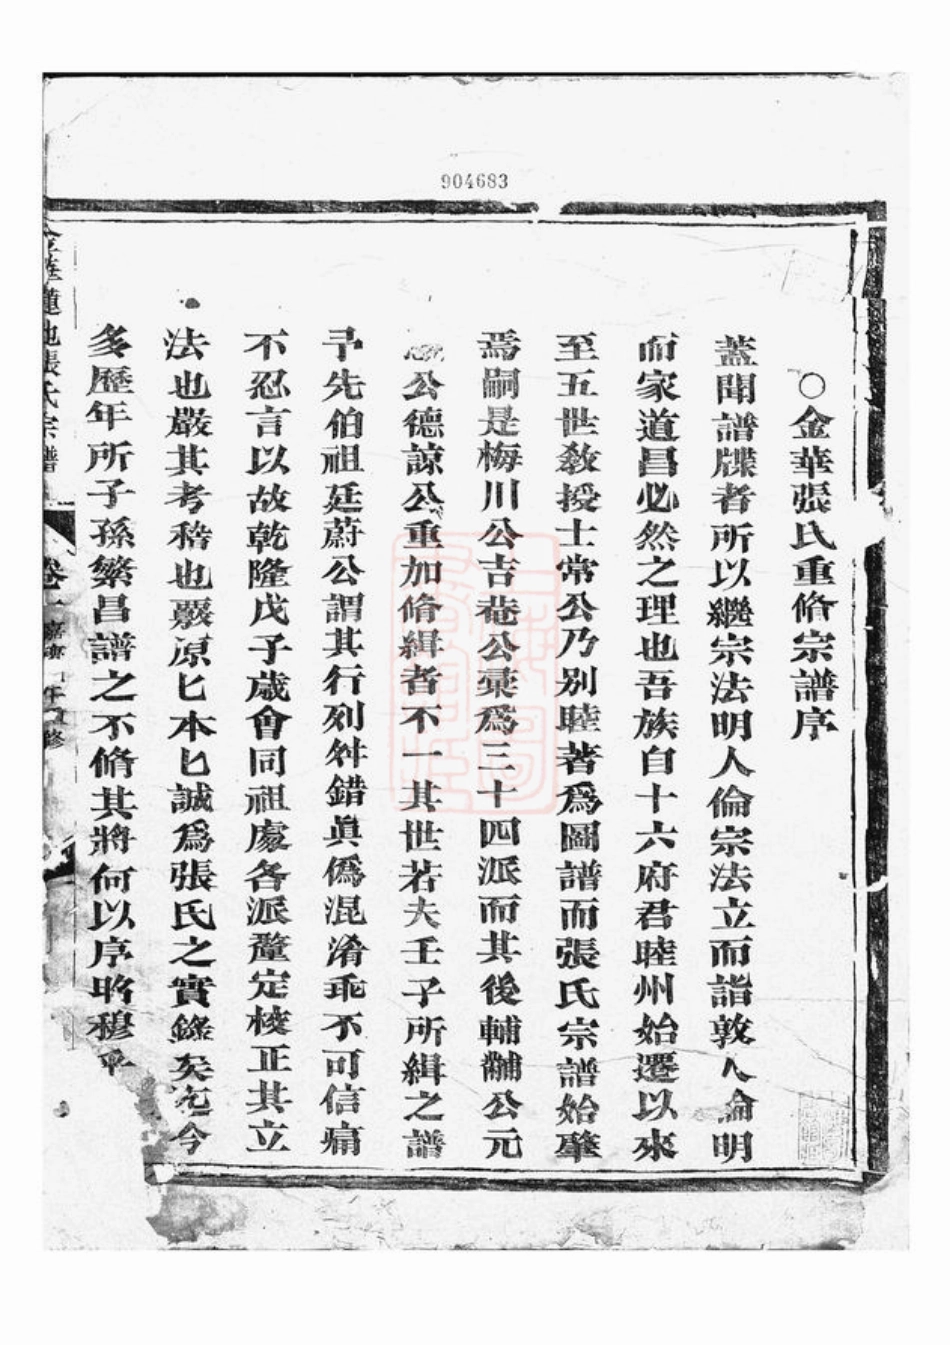 904683
○金華張氏重脩宗譜序
蓋聞譜牒者所以繼宗法明人倫宗法立而譜敦人倫明
而家道昌必然之理也吾族自十六府君睦州始遷以來
至五世敎授士常公乃別睦著為圖譜而張氏宗譜始肇
焉嗣是梅川公吉菴公彙為三十四派而其後輔黼公元
公德諒公重加脩緝者不一其世若夫壬子所緝之譜
予先伯祖廷蔚公謂其行列舛錯眞偽混淆乖不可信痛
不忍言以故乾隆戊子歲會同祖處各派釐定校正其立
法也嚴其考稽也覈原匕本匕誠為張氏之實錄矣迄今
多歷年所子孫繁昌譜之不脩其將何以序昭穆
金華蓮池張氏宗譜 卷一